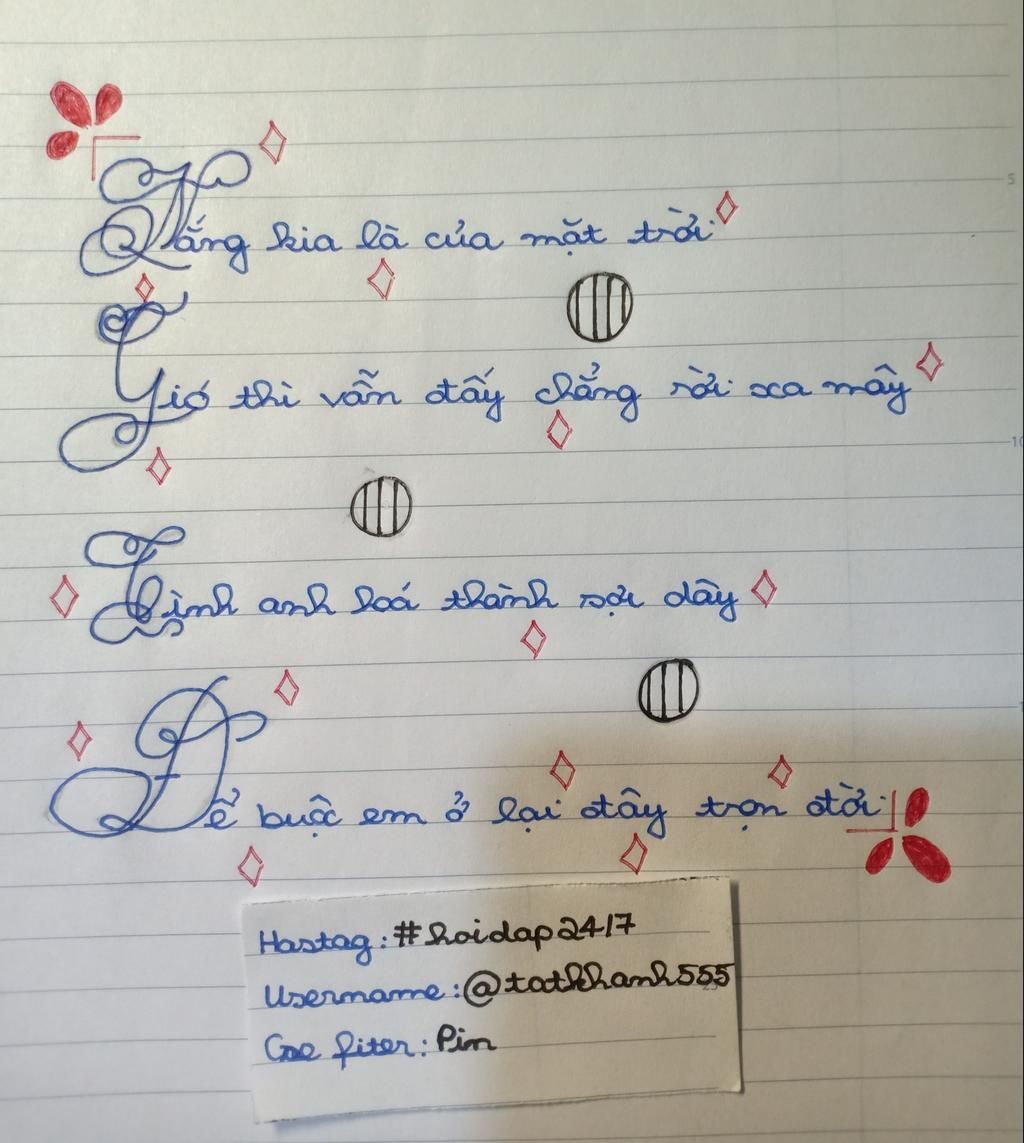 Nắng kia là của mặt trời
Gió thì vẫn đấy chẳng rời xa mây
Tình anh hoá thành sợi dây
Để buộc em ở lại đây trọn đời
Hastag: #hoidap2417
Username: @tatkhanh555
fiter: Pim